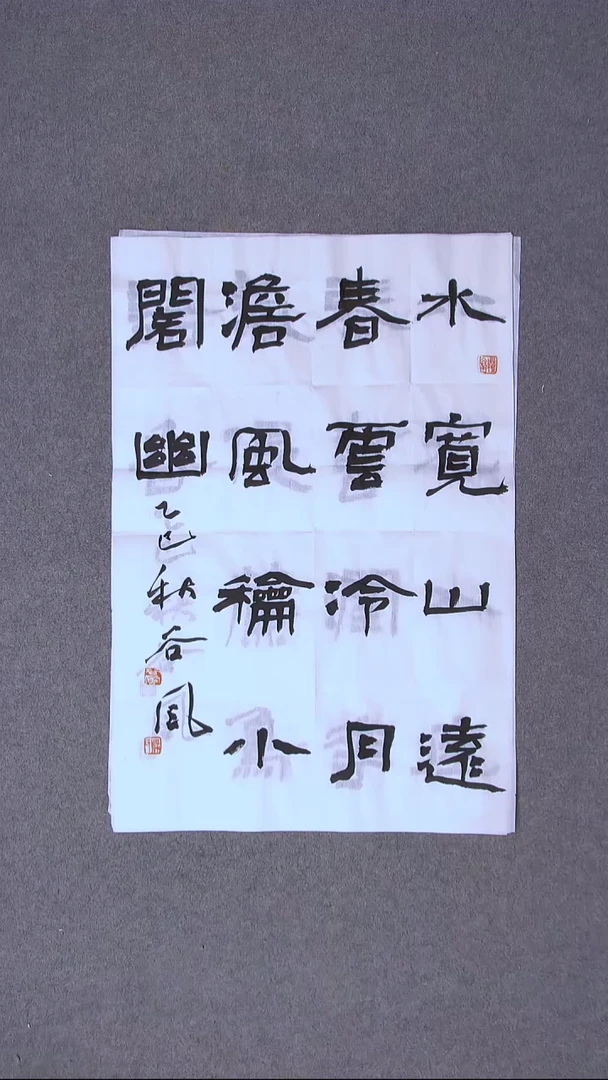 水寬山遠
春雲冷月
澹風龢小
閣幽
乙巳秋谷風